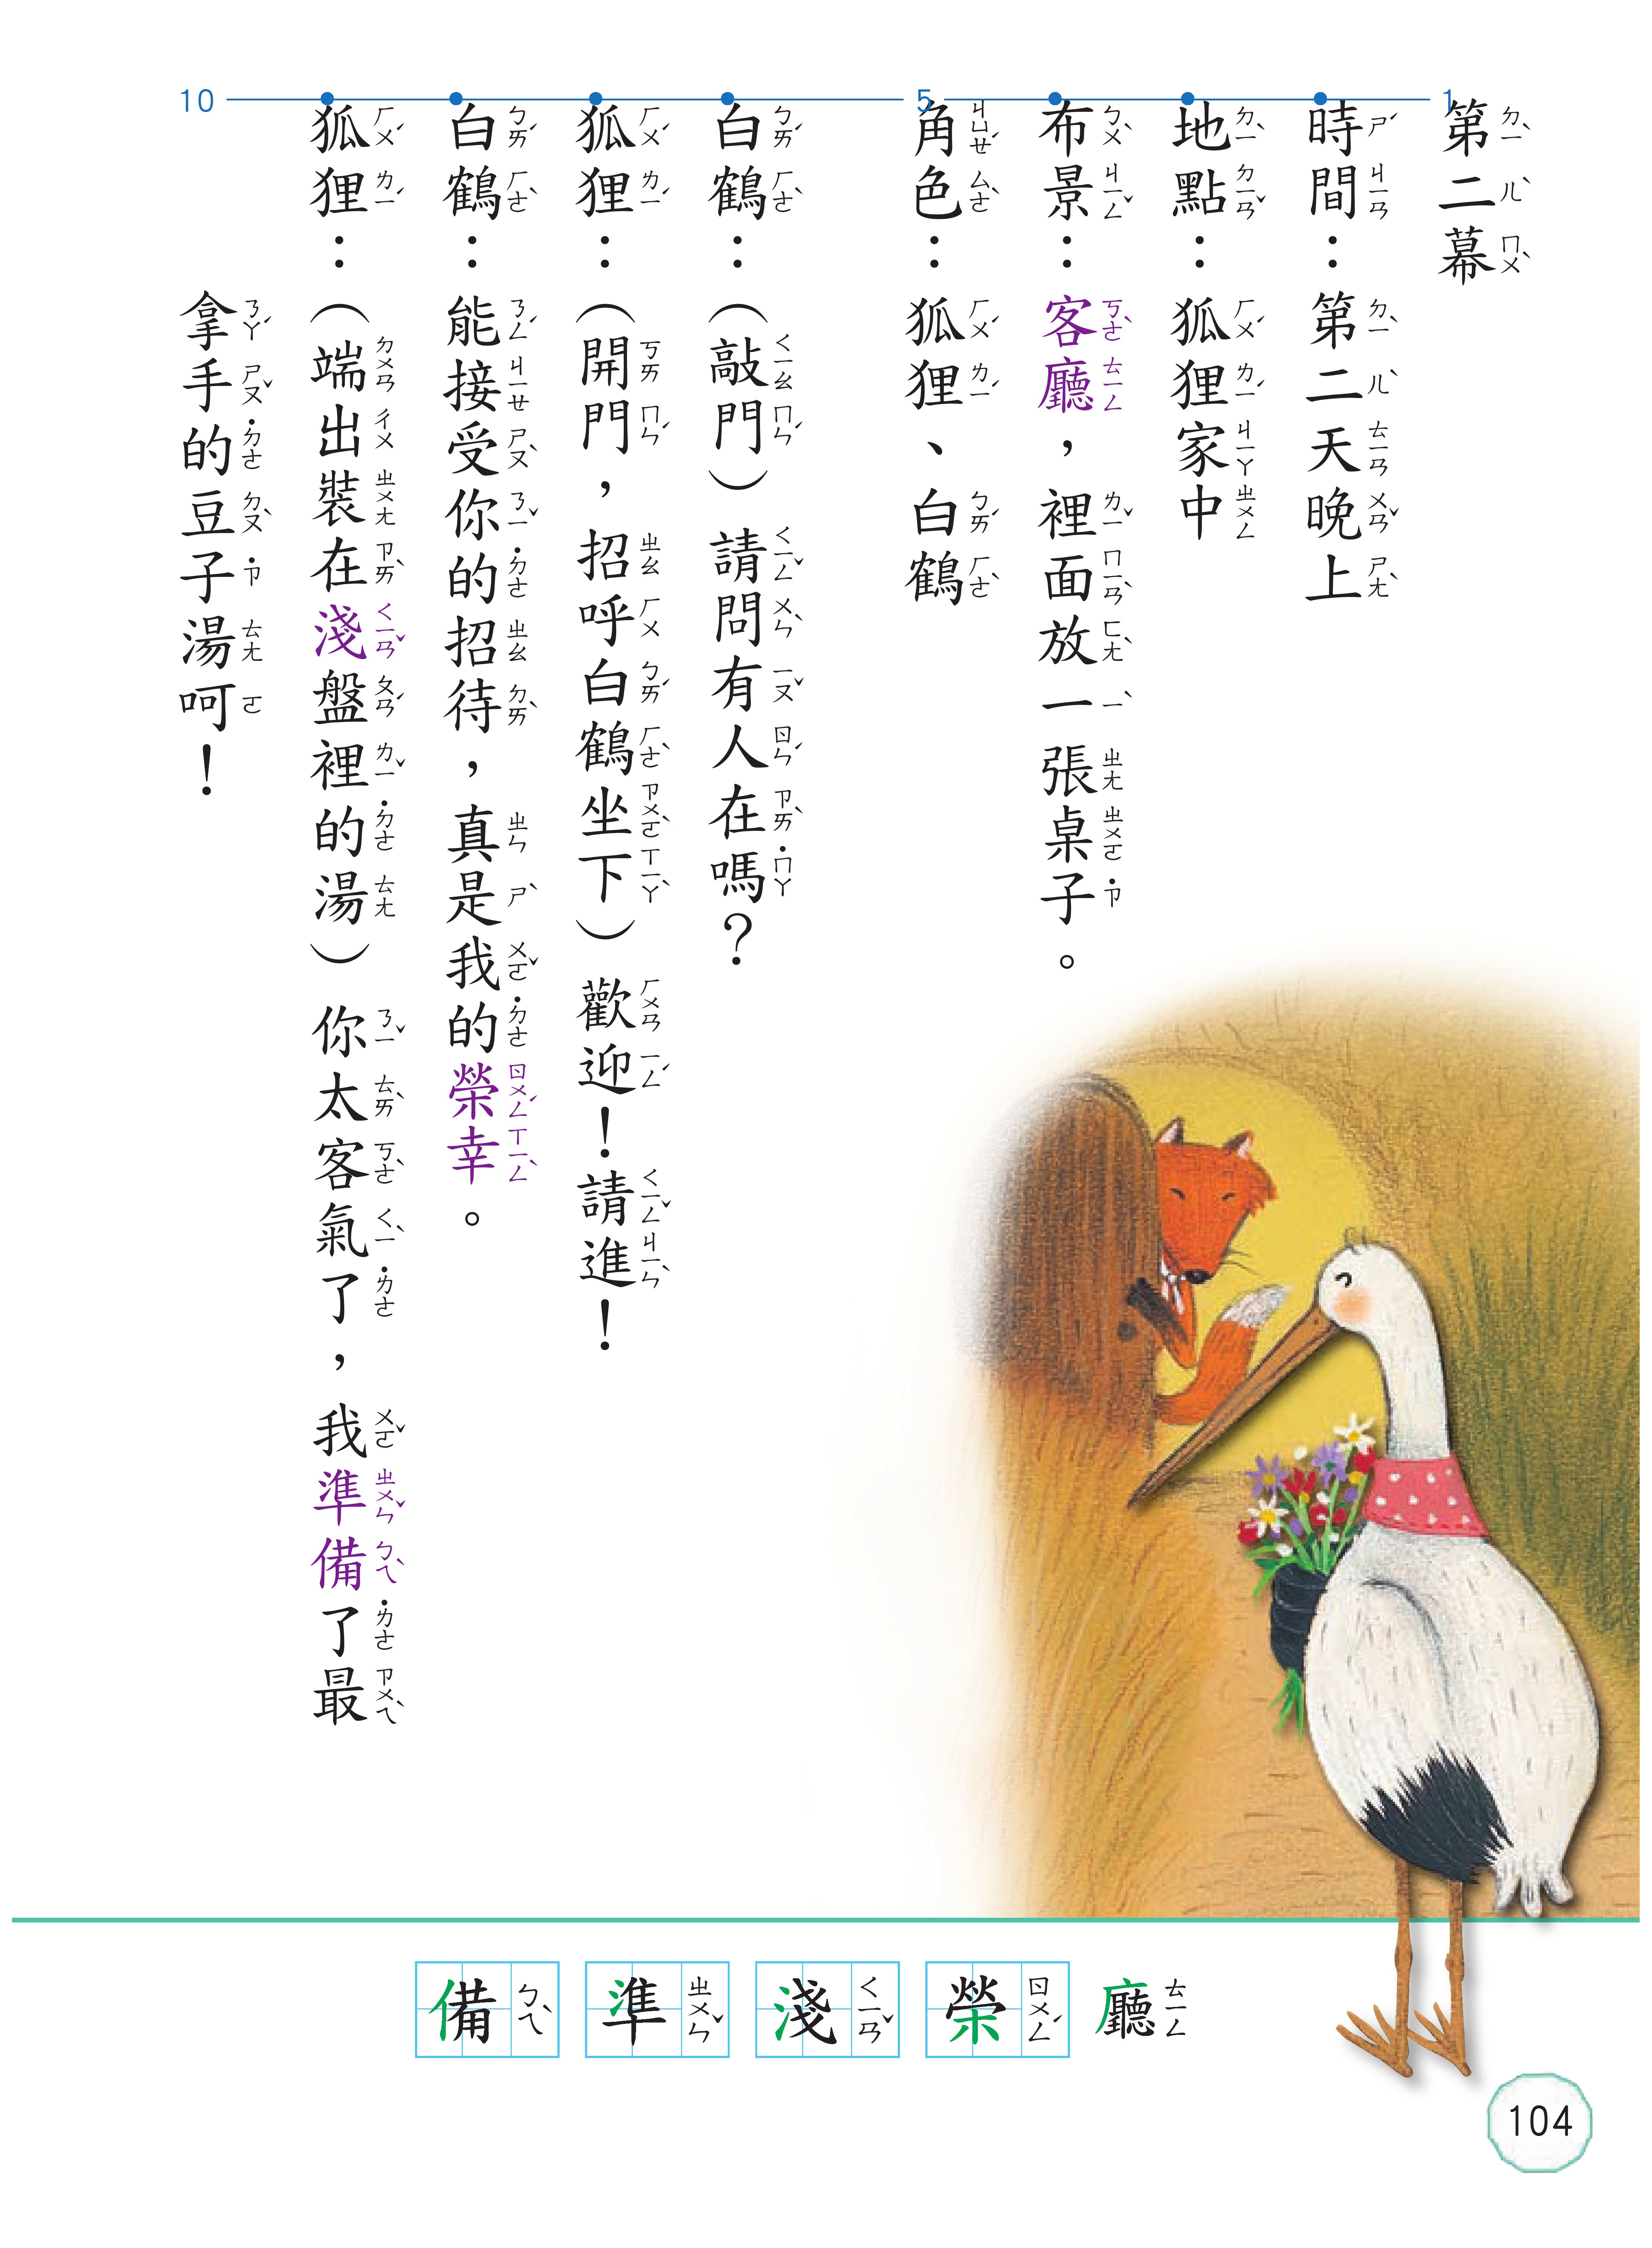 第二幕
時間：第二天晚上
地點：狐狸家中
布景：客廳，裡面放一張桌子。
角色：狐狸、白鶴
白鶴：（敲門）請問有人在嗎？
狐狸：（開門，招呼白鶴坐下）歡迎！請進！
白鶴：能接受你的招待，真是我的榮幸。
狐狸：（端出裝在淺盤裡的湯）你太客氣了，我準備了最
拿手的豆子湯呵！
1
5
10
廳 ㄊㄧㄥ
榮 ㄖㄨㄥˊ
淺 ㄑㄧㄢˇ
準 ㄓㄨㄣˇ
備 ㄅㄟˋ
104